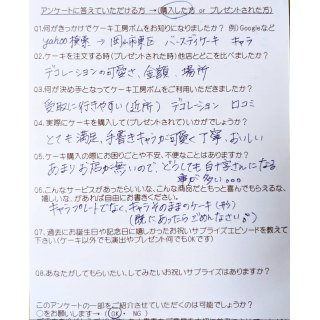 アンケートに答えていただける方 →(購入した方 or プレゼントされた方)
01.何がきっかけでケーキ工房ボムをお知りになりましたか? 例)Googleなど
yahoo検索 → 岡山市東区 バースディケーキ キャラ
02.ケーキを注文する時(プレゼントされた時)他店とどこを比べましたか?
デコレーションの可愛さ、金額、場所
03.何が決め手となってケーキ工房ボムをご利用いただきましたか?
受取に行きやすい(近所) デコレーション 口コミ
04.実際にケーキを購入して(プレゼントされて)いかがでしょうか?
とても満足、手書きキャラが可愛く丁寧、おいしい
05.ケーキ購入の際にお困りごとや不安、不便なことはありますか?
あまりお店が無いので、どうしても白十字さんになる
事が多い。。。
06.こんなサービスがあったらいいな、こんな商品だともっと喜んでもらえるな、
嬉しいな、があれば自由にお書きください。
キャラプレートでなく、キャラそのままのケーキ(形)
(既にあったらごめんなさい)
07.過去にお誕生日や記念日に嬉しかったお祝いサプライズエピソードを教えて
下さい(ケーキ以外でも演出やプレゼント何でもOKです)
08.あなたがしてもらいたい、してみたいお祝いサプライズはありますか?
このアンケートの一部をご紹介させていただくのは可能でしょうか?
○をお願いします→ (OK ・ NG )